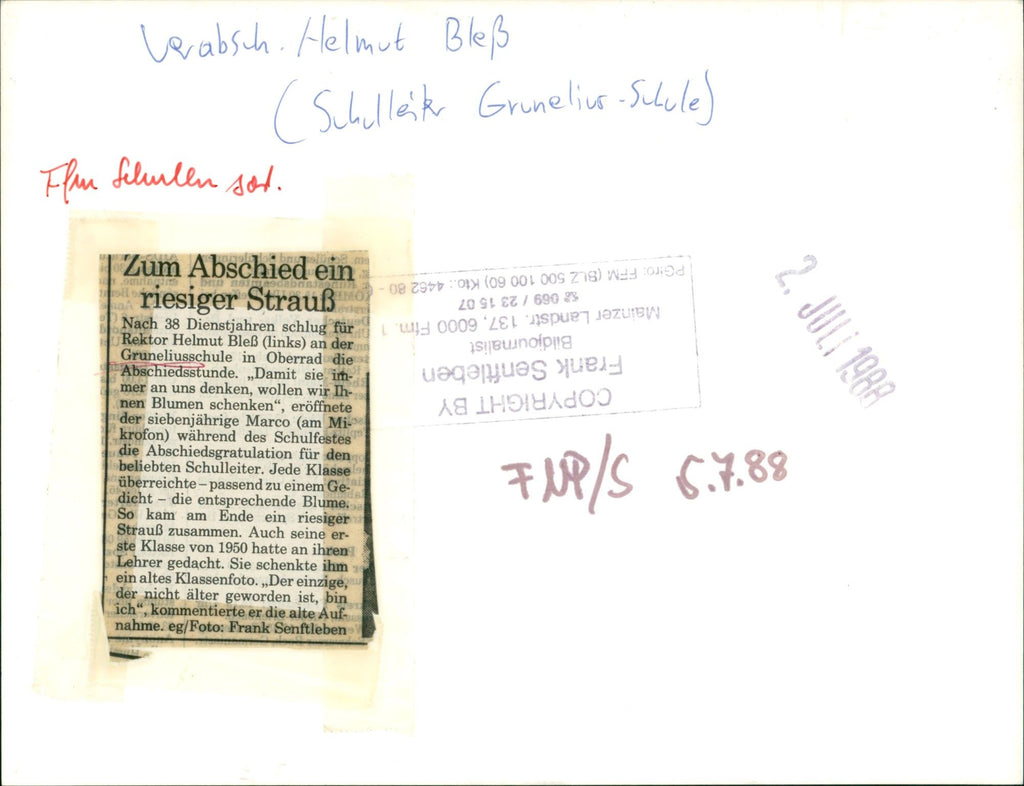 Verabsch. Helmut Bleß
(Schulleiter Grunelius-Schule)
Ffm Schulen
Zum Abschied ein
riesiger Strauß
Nach 38 Dienstjahren schlug für
Rektor Helmut Bleß (links) an der
Gruneliusschule in Oberrad die
Abschiedsstunde. „Damit sie im-
mer an uns denken, wollen wir Ih-
nen Blumen schenken“, eröffnete
der siebenjährige Marco (am Mi-
krofon) während des Schulfestes
die Abschiedsgratulation für den
beliebten Schulleiter. Jede Klasse
überreichte – passend zu einem Ge-
dicht – die entsprechende Blume.
So kam am Ende ein riesiger
Strauß zusammen. Auch seine er-
ste Klasse von 1950 hatte an ihren
Lehrer gedacht. Sie schenkte ihm
ein altes Klassenfoto. „Der einzige,
der nicht älter geworden ist, bin
ich“, kommentierte er die alte Auf-
nahme. eg/Foto: Frank Senftleben
COPYRIGHT BY
Frank Senftleben
Bildjournalist
Mainzer Landstr. 137, 6000 Ffm. 1
☎ 069 / 23 15 07
PGiro: FFM (BLZ 500 100 60) Kto.: 4462 80 - 6
2. JULI 1988
FNP/S 5.7.88